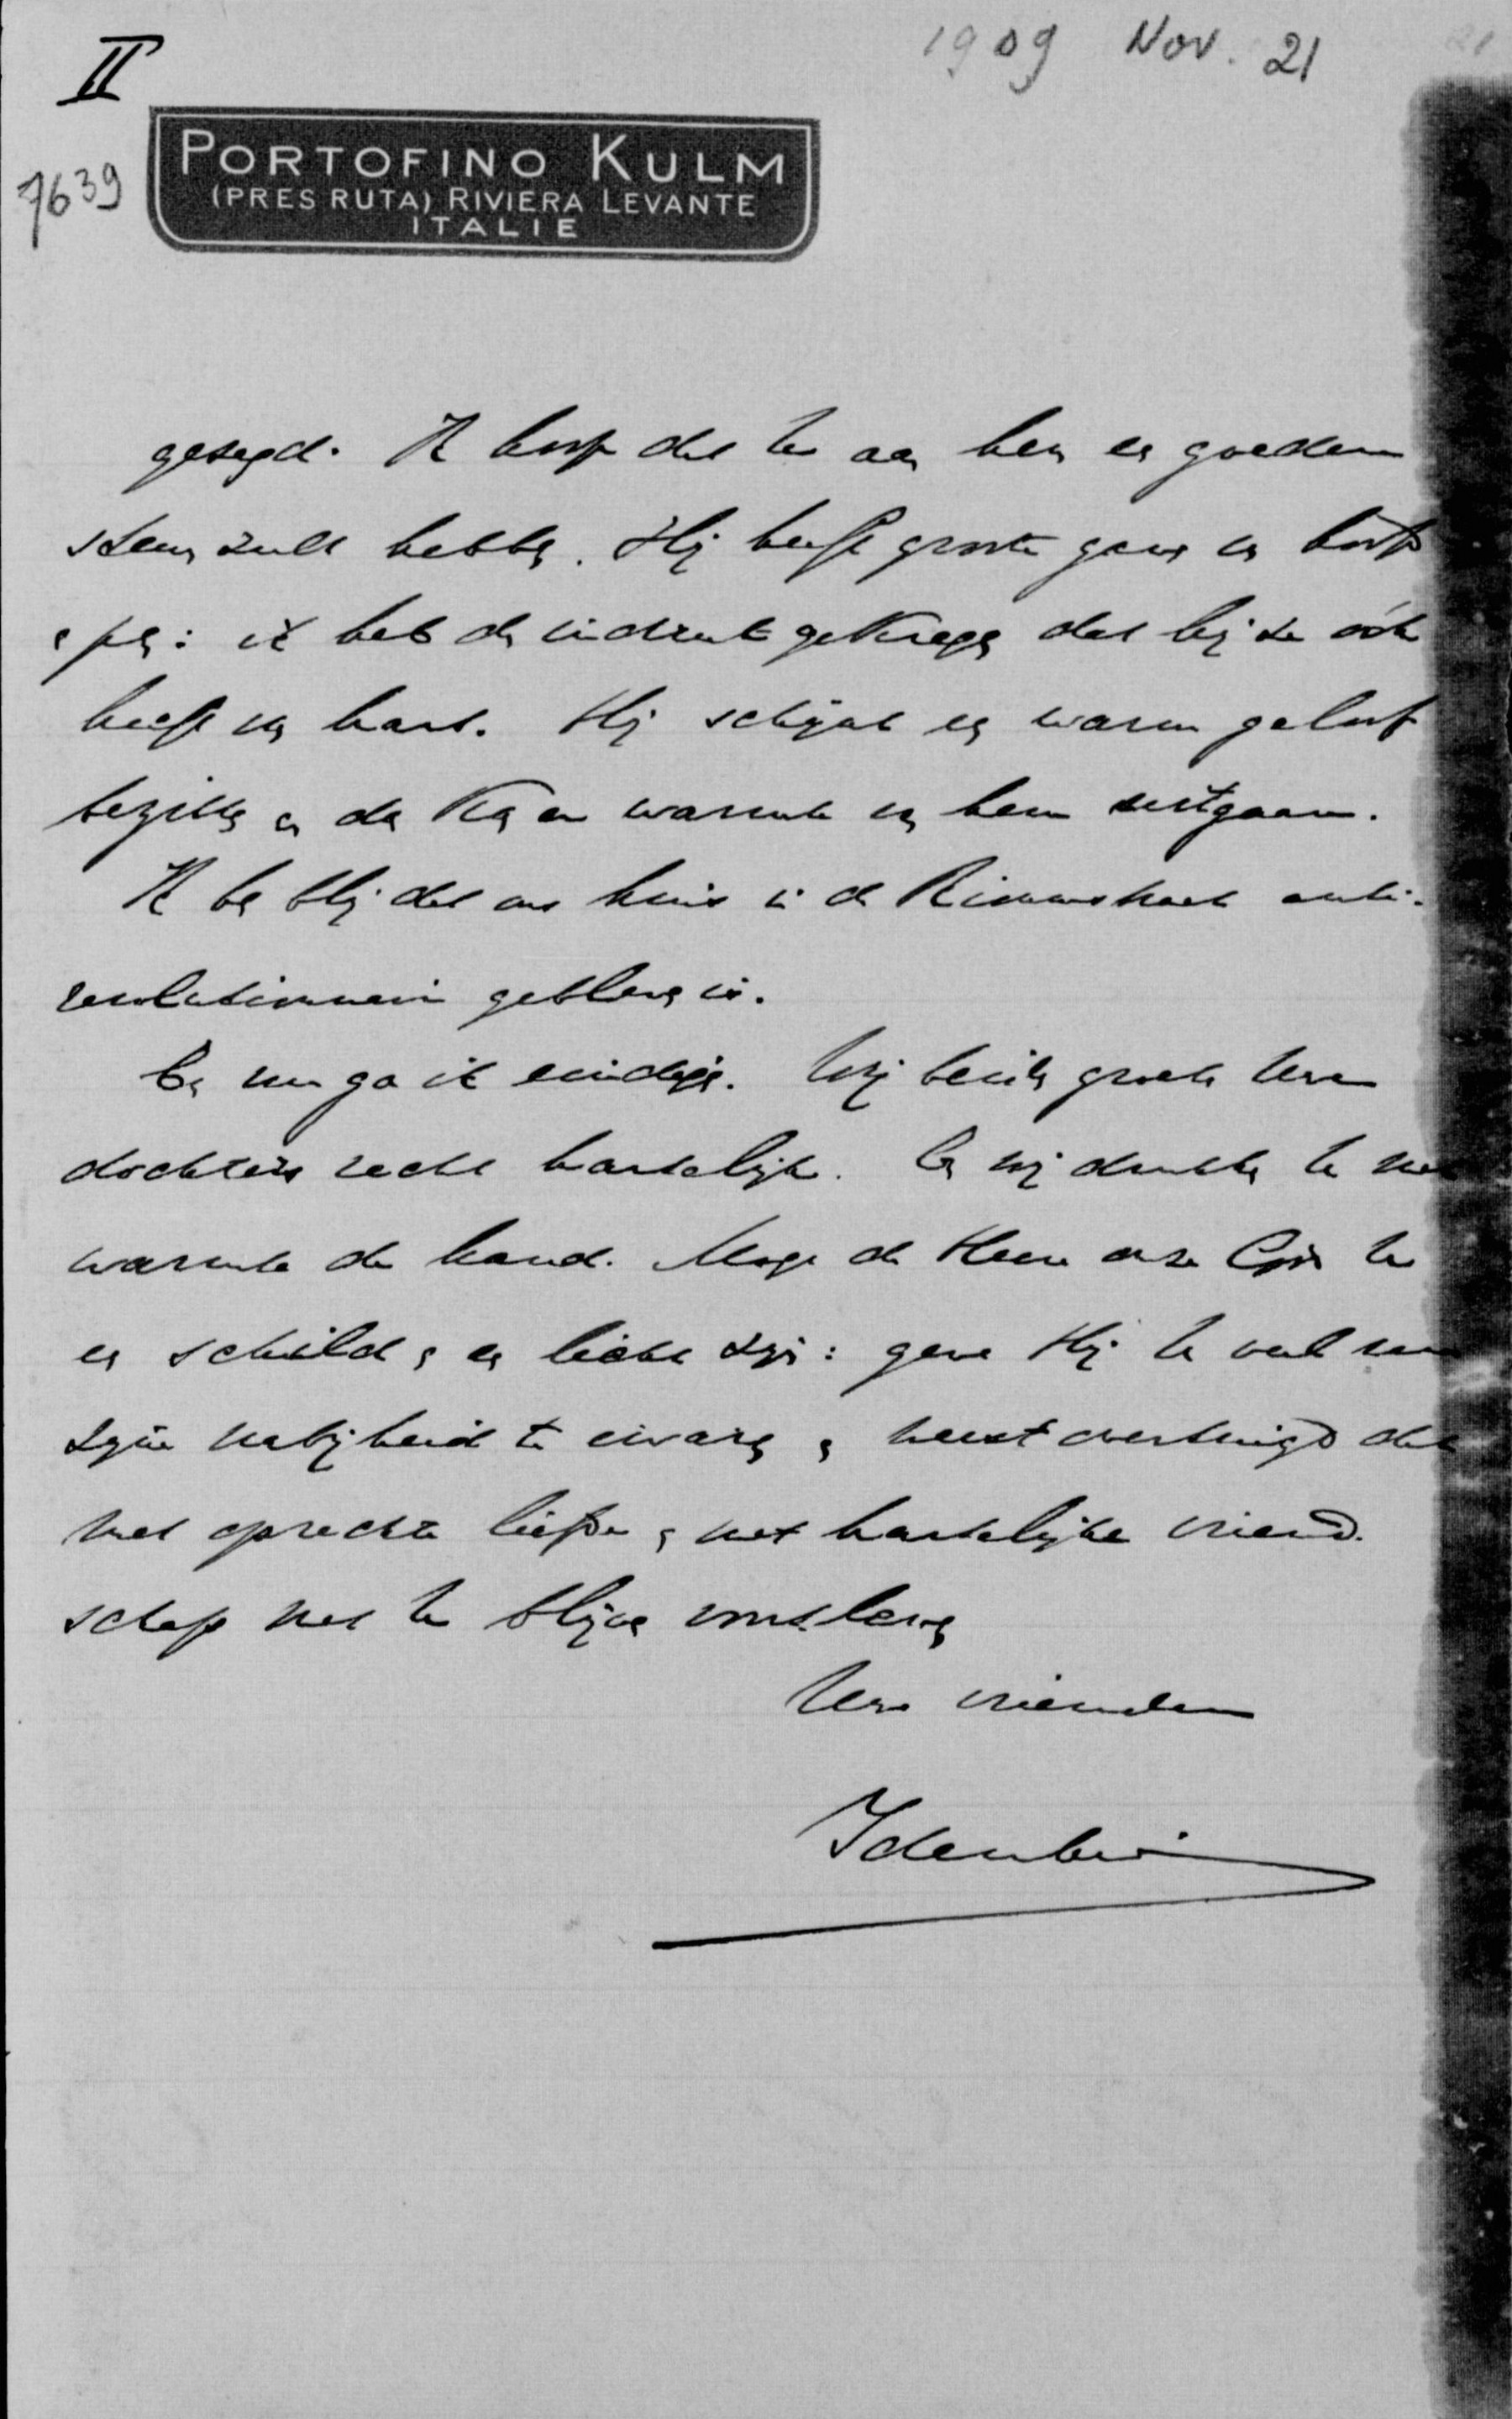 II
1909 Nov. 21
7639
PORTOFINO KULM
(PRES RUTA) RIVIERA LEVANTE
ITALIE
gezegd. Ik hoop dat U aan hem een goeden
steun zult hebben. Hij heeft groote gaven van hoofd
en pen: ik heb den indruk gekregen dat hij ze ook
heeft van hart. Hij schijnt een warm geloof
te bezitten en dan kan er warmte van hem uitgaan.
Ik ben blij dat ons huis in de Riouwstraat anti-
revolutionnair gebleven is.
En nu ga ik eindigen. Wij beiden groeten Uwe
dochters recht hartelijk. En wij drukken U met
warmte de hand. Moge de Heere onze God U
een schild en een licht zijn: geve Hij U veel van
zijne nabijheid te ervaren en weest overtuigd dat
met oprechte liefde en met hartelijke vriend-
schap met U blijven medeleven
Uwe vrienden
Idenburg